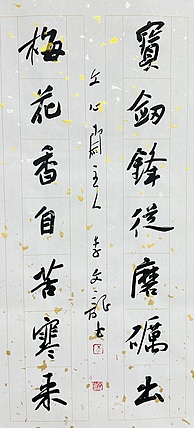 寶劒鋒從磨礪出
梅花香自苦寒來
文心閣主人 李文龍書